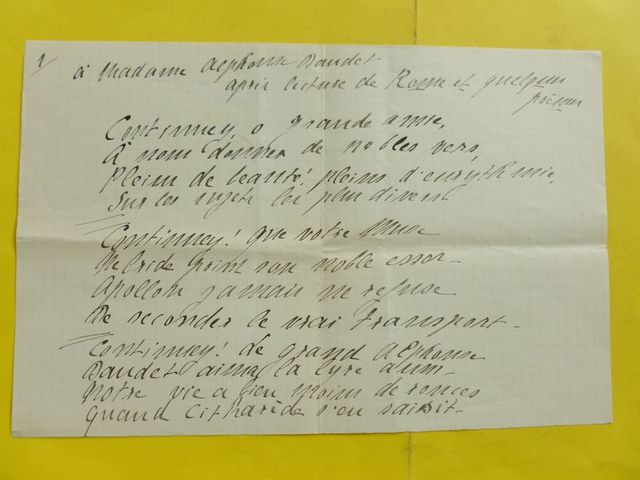 1/
à Madame Alphonse Daudet
après lecture de Rome et quelques
poèmes
Continuez, o grande amie,
À nous donner de nobles vers,
Pleins de beauté! pleins d'eurythmie,
Sur les sujets les plus divers
Continuez! que votre Muse
Ne bride point son noble essor-
Apollon jamais ne refuse
De seconder le vrai transport-
Continuez! Le grand Alphonse
Daudet aima la lyre
Notre vie a bien moins de ronces
Quand Citharède s'en saisit-